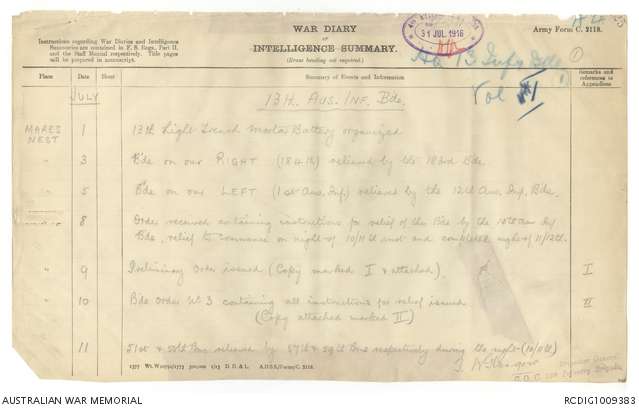 WAR DIARY
or
INTELLIGENCE SUMMARY.
(Erase heading not required.)
Instructions regarding War Diaries and Intelligence
Summaries are contained in F. S. Regs., Part II.
and the Staff Manual respectively. Title pages
will be prepared in manuscript.
31 JUL 1916
Army Form C. 2118.
HQ 13 Infy Bde
Vol 1
Place Date Hour Summary of Events and Information Remarks and references to Appendices
JULY
13th Aus. Inf. Bde.
MARES NEST 1 13th Light Trench Mortar Battery organized
" 3 Bde on our RIGHT (184th) relieved by the 183rd Bde.
" 5 Bde on our LEFT (1st Aus. Inf) relieved by the 12th Aus. Inf. Bde.
8 Order received containing instructions for relief of this Bde by the Aus Inf
Bde, relief to commence on night of 10/11th inst and completed night of 11/12th.
" 9 Preliminary Order issued (Copy marked I attached). I
" 10 Bde Order No 3 containing all instructions for relief issued II
(Copy attached marked II)
11 51st & Bns relieved by 57th & 59th Bns respectively during the night (10/11th)
Brigadier General
1577 Wt. W10791/1773 500,000 1/15 D. D. & L. A.D.S.S./Forms/C. 2118.
AUSTRALIAN WAR MEMORIAL
RCDIG1009383